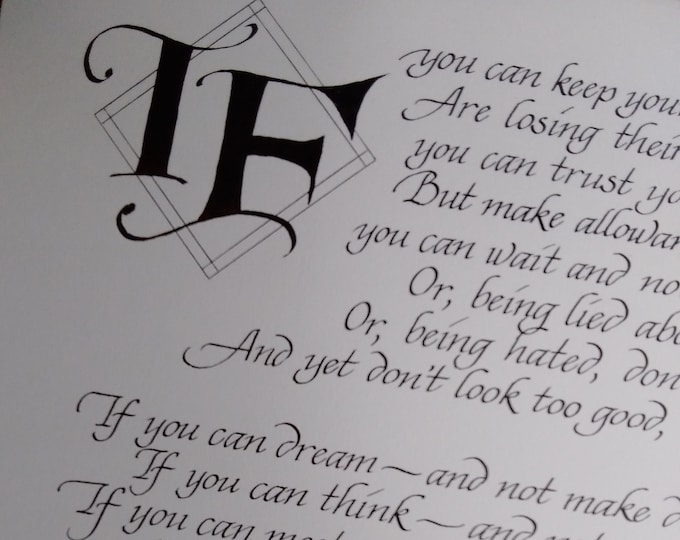 IF
you can keep your
Are losing their
you can trust
But make
you can wait and
Or, being lied
Or, being hated,
And yet don't look too good,
If you can dream—and not make
If you can think—and
If you can